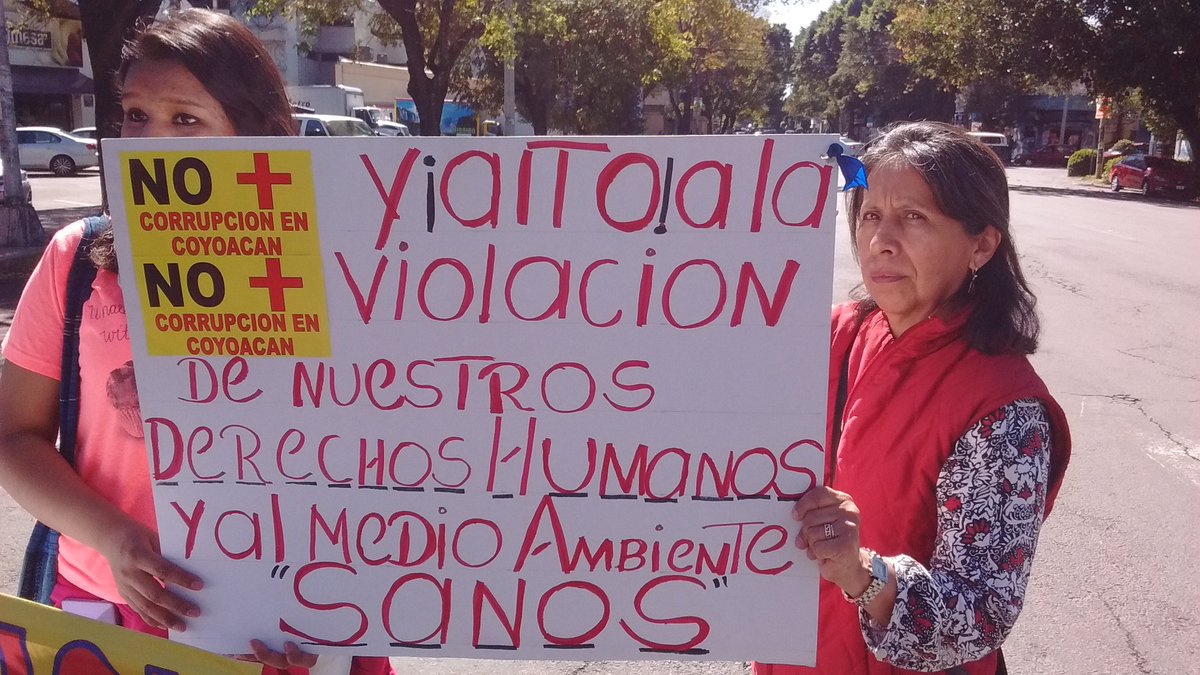 NO +
CORRUPCION EN
COYOACAN
NO +
CORRUPCION EN
COYOACAN
y ¡alTo! a la
VIOLACION
DE NUESTROS
DERECHOS HUMANOS
y al MEDIO AMBIENTE
"SANOS"